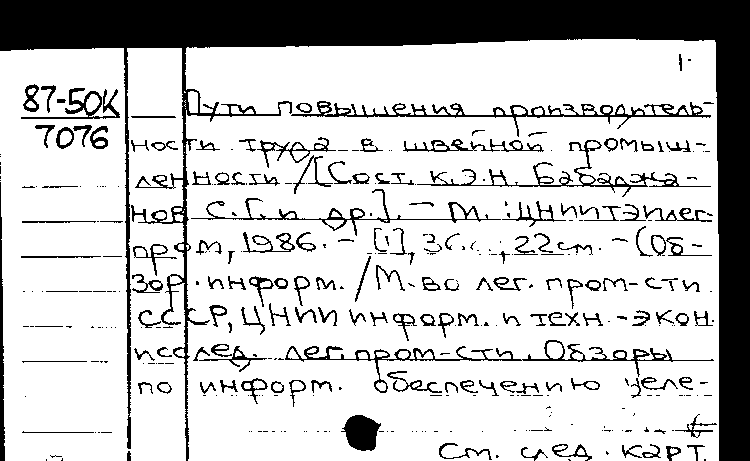 1.
87-50К
7076
Пути повышения производитель-
ности труда в швейной промыш-
ленности / [Сост. к.э.н. Бабаджа-
нов С.Г. и др.]. - М. : ЦНИИТЭИлег-
пром, 1986. - [1], 36 с. ; 22 см. - (Об-
зор. информ. / М-во лег. пром-сти
СССР, ЦНИИ информ. и техн.-экон.
исслед. лег. пром-сти. Обзоры
по информ. обеспечению целе-
См. след. карт.